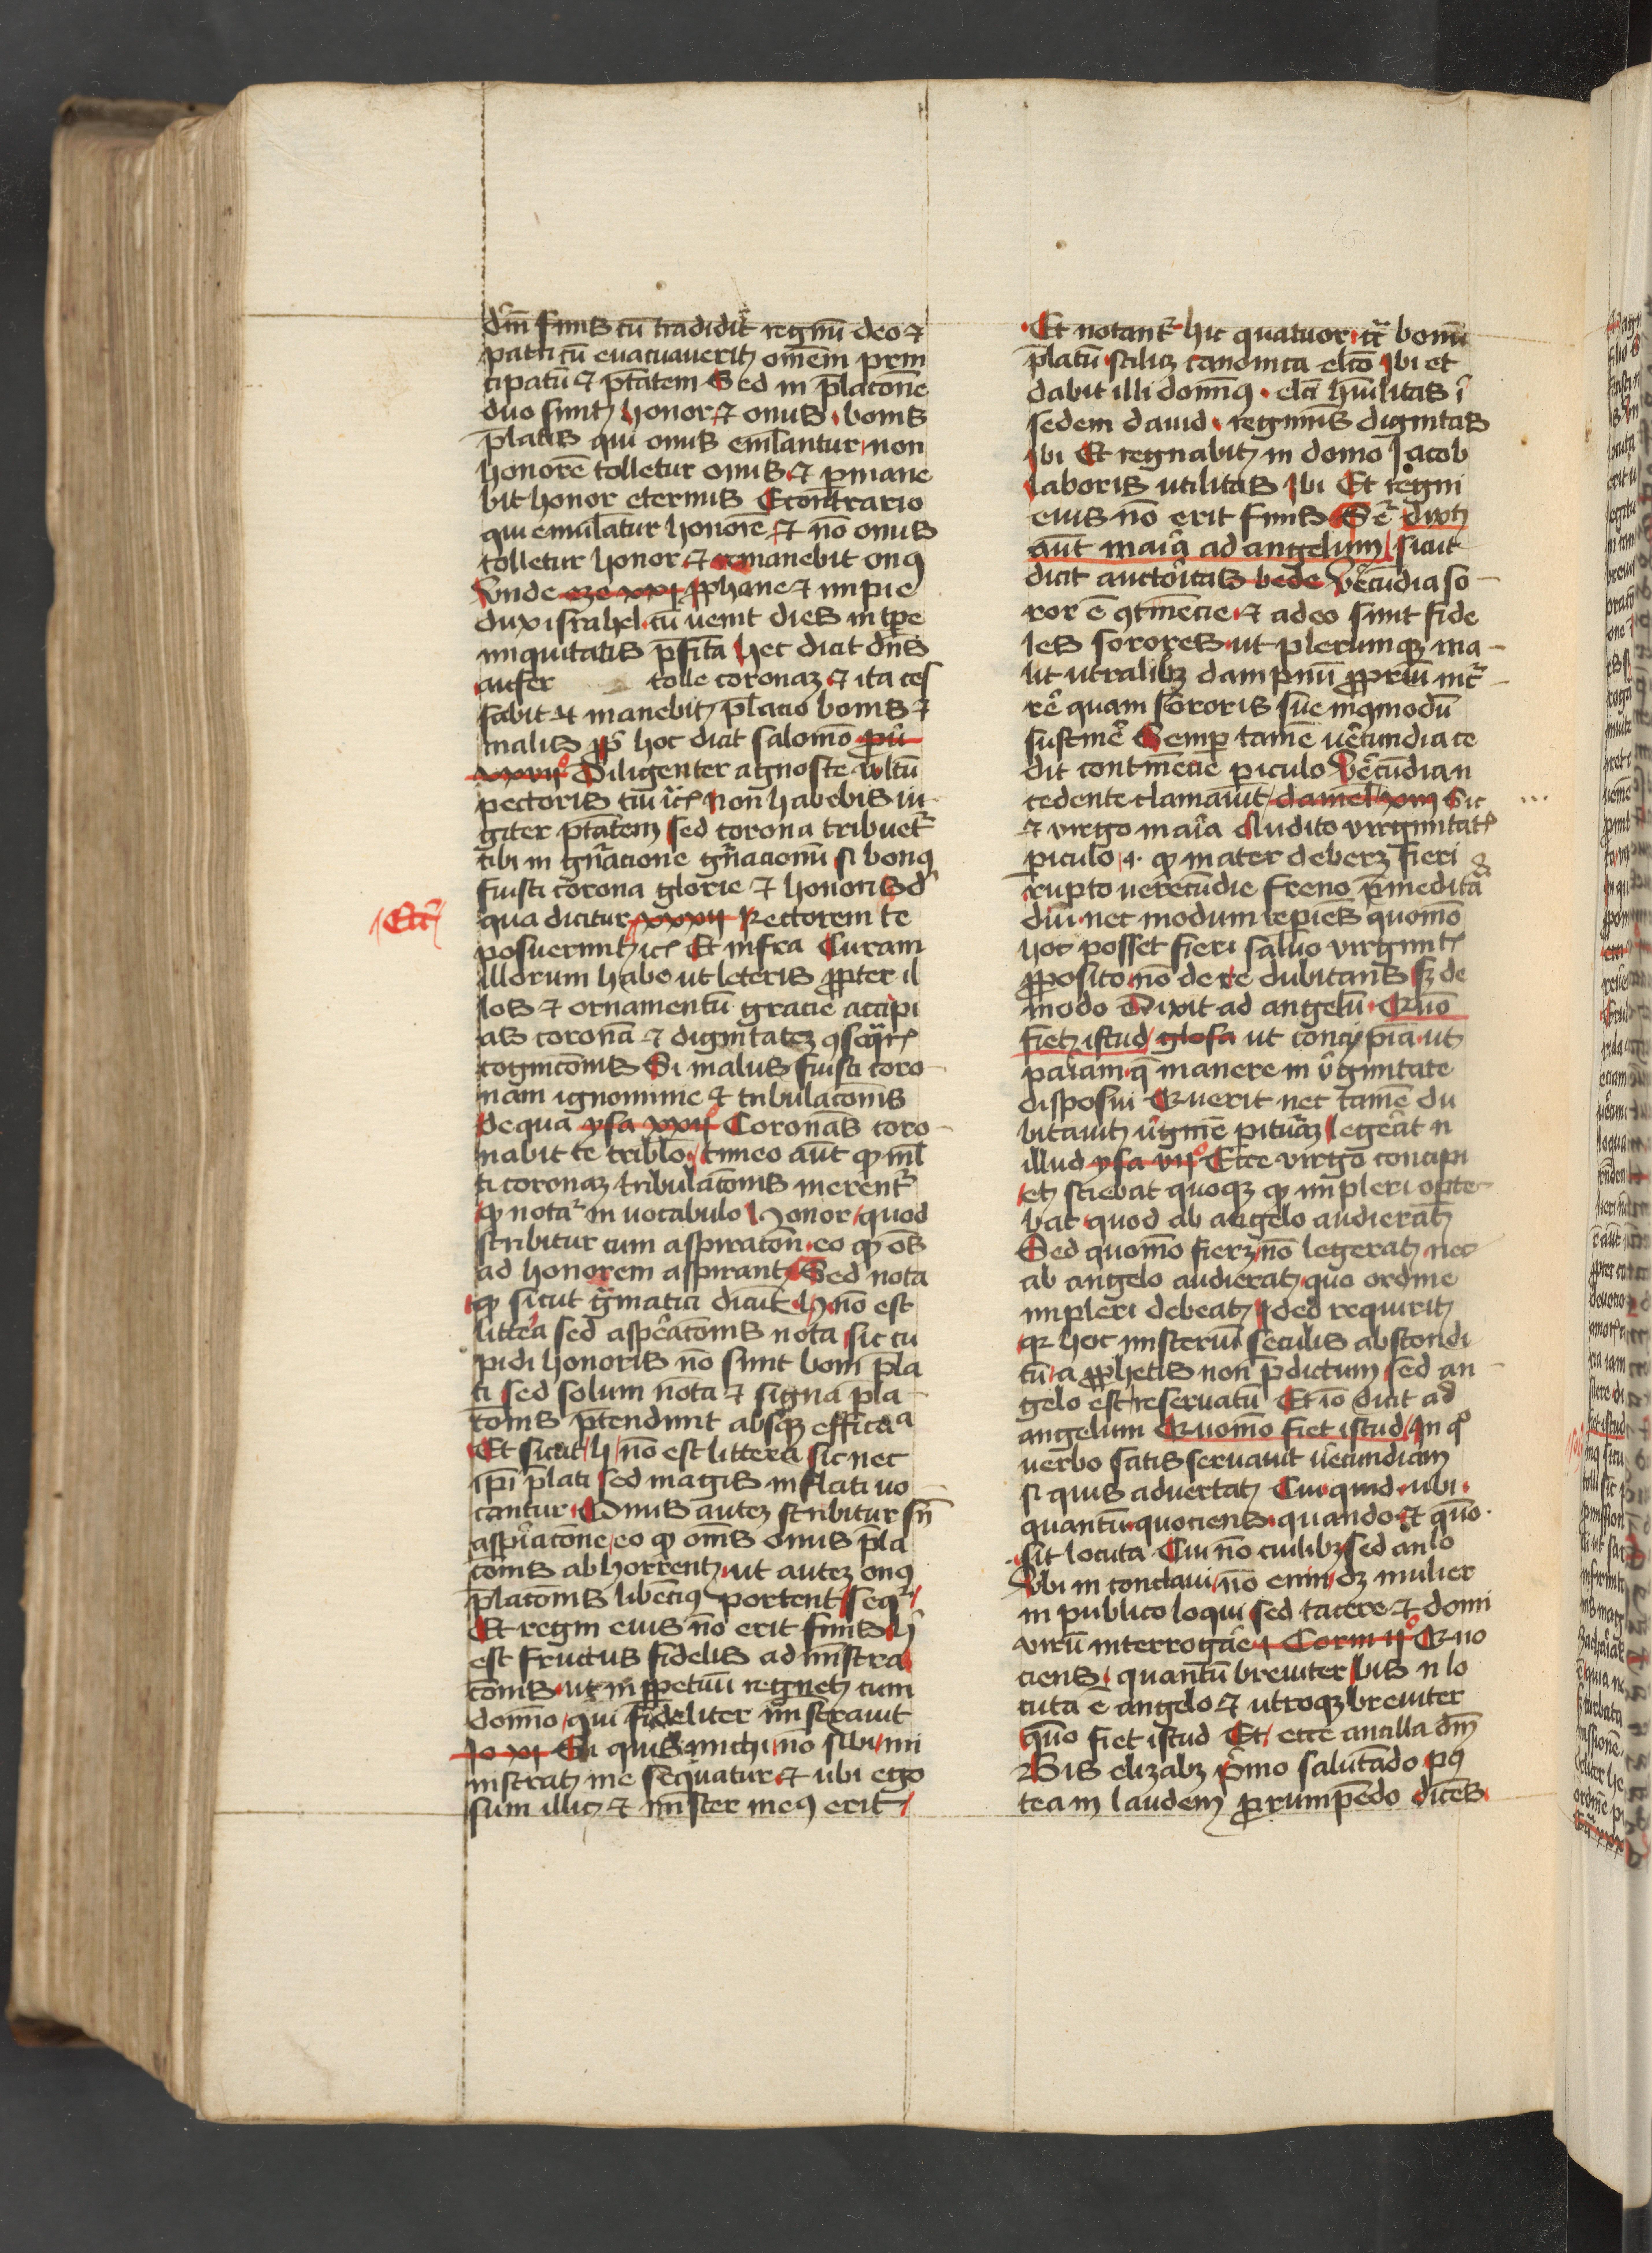 dein̄ finis cū tradidit regnū deo ⁊
patri cū euacuauerit omēm prin
cipatū ⁊ ptātem Sed in p̄lacōne
duo sunt honor ⁊ onus bonis
p̄latis qui onus emlantur non
honorē tolletur onus ⁊ pmane
bit honor eternus Econtrario
qui emulātur honorē ⁊ nō onus
tolletur honor ⁊ remanebit onꝯ
Vnde eze xxi ꝓphane ⁊ impie
dux israhel cū uenit dies in tpe
iniquitatis p̄fita hec dicit dn̄s
aufer tolle coronaꝫ ⁊ ita ces
sabit ⁊ manebit p̄lacio bonis ⁊
malis hoc dicit salomō pu
xxvii° Diligenter agnosce vltū
pectoris tui ⁊c Non habebis iu
giter ptātem sed corona tribuet᷑
tibi in gn̄acione gn̄acionū si bonꝯ
fuisti corona glorie ⁊ honoris d
Ecc
qua dicitur xxxii Rectorem te
posuerunt ⁊c Et infra Curam
illorum habe ut leteris ꝓpter il
los ⁊ ornamentū gracie accipi
as coronā ⁊ dignitateꝫ ꝯseqr
cognicōnis Si malus fuisti coro
nam ignominie ⁊ tribulacōnis
De qua ysa xxii° Coronās coro
nabit te triblō timeo aūt ꝙ ml
ti coronaꝫ tribulacōnis merent᷑
ꝙ nota᷑ in uocabulo honor quod
scribitur cum aspiracōn eo ꝙ oēs
ad honorem aspirant Sed nota
ꝙ sicut gmatici dicūt h nō est
littera sed aspēacōnis nota sic cu
pidi honoris nō sunt boni p̄la
ti sed solum nota ⁊ signa p̄la
cōnis p̄tendunt absqꝫ efficaa
Et sicut h nō est littera sic nec
ip̄i p̄lati sed magis inflati uo
cantur Onus auteꝫ scribitur sn̄
aspiacōne eo ꝙ om̄s onus p̄la
cōnis abhorrent ut auteꝫ onꝯ
p̄lacōnis libēciꝯ portent seqr
Et regni eius nō erit finis h
est fructus fidelis administra
cōnis ut in ppetuū regnet cum
domino qui fideliter mistrauit
Jo xii Si quis michi nō sibi mi
nistrat me sequatur ⁊ ubi ego
sum illic ⁊ mister meꝯ erit
Et notant᷑ hic quatuor cᷓ bonū
p̄latū scilicꝫ canonica elcō Ibi et
dabit illi domnꝯ elā hūilitas i
sedem dauid regiminis dignitas
Ibi Et regnabit in domo Iacob
laboris utilitas Ibi Et regni
eius nō erit finis Se dixit
aūt maria ad angelum sicut
dicit auctoritas bede Vecūdia so
ror ē ꝯtinēcie ⁊ adeo sunt fide
les sorores ut plerumqꝫ ma
lit utralibꝫ dampnū ꝓpriū inc
rē quam sororis sue inqmodū
sustinē Semp tamē uēcundia ce
dit continēcie piculo Vēcūdia n
cedente clamauit daniel xiii Sic
⁊ virgo maria Audito virginitat
piculo .i. ꝙ mater deberꝫ fieri
rupto verecūdie freno p̄meditā
diu nec modum repiēs quomō
hoc posset fieri saluo virginit
ꝓposito nō de re dubitans sꝫ de
modo Dixit ad angelū Quō
fiet istud glosa ut concipiā ut
pariam q̄ manere in v̄ginitate
disposui Querit nec tamē du
bitauit v̄ginē pituraꝫ legeāt n
illud ysa vii° Ecce virgo concipi
et sciebat quoqꝫ ꝙ impleri oporte
bat quod ab angelo audierat
Sed quomō fierꝫ nō legerat nec
ab angelo audierat quo ordine
impleri debeat Ideo requirit
qꝛ hoc misteriū seculis abscondi
tū a ꝓphetis non p̄dictum sed an
gelo est reseruatū Et iō dicit ad
angelum Quomō fiet istud In qo
uerbo satis seruauit uēcundiam
si quis aduertat Cui quid ubi
quantū quociens quando ⁊ quō
sit locuta Cui nō cuilibꝫ sed anlo
Vbi in conclaui nō enim dꝫ mulier
in publico loqui sed tacere ⁊ domi
virū interrogāe i Corin ii° Quo
ciens quantū breuiter bis n lo
cuta ē angelo ⁊ utroqꝫ breuiter
quō fiet istud Et ecce ancilla dn̄i
Bis elizabꝫ pimo salutādo pꝯ
tea in laudem ꝓrumpēdo dicēs